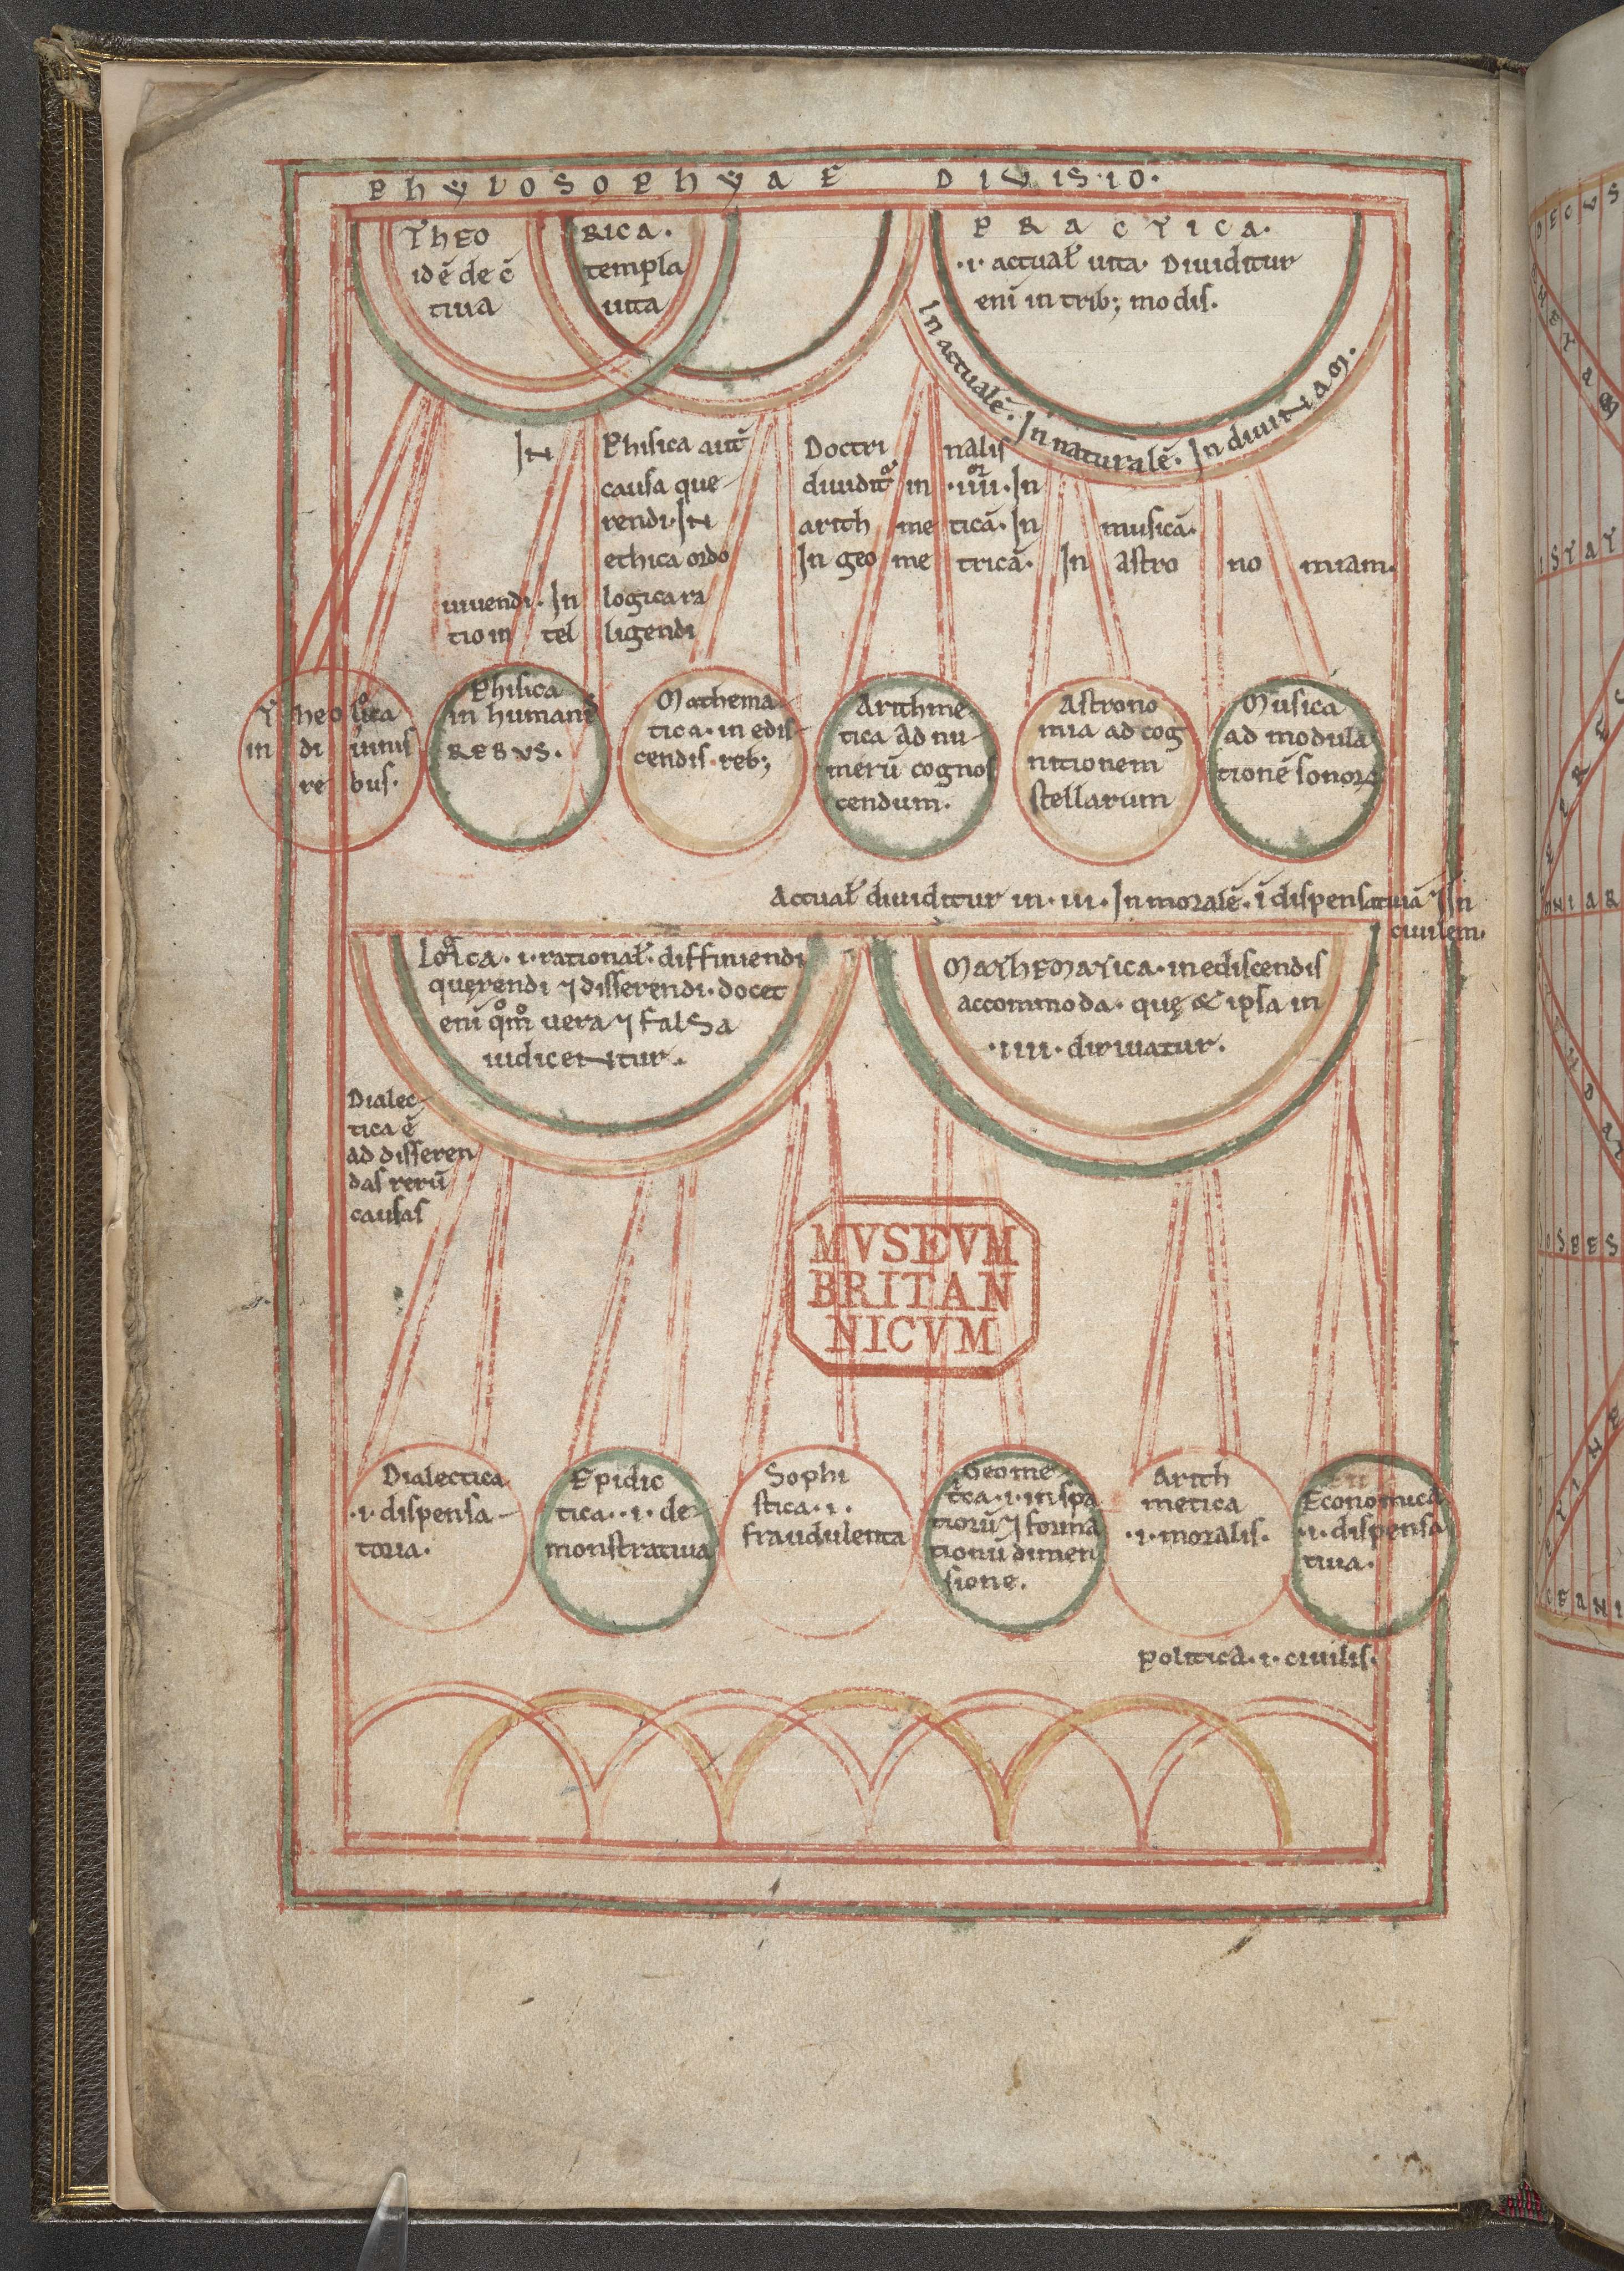 PHYLOSOPHYAE DIVISIO.
THEORICA.
idē de cōtempla
tiua uita
PRACTICA.
·i· actual̄ uita· Diuiditur
eni in trib; modis.
In actualē. In naturalē. In diuinam.
In Phisica aut̄
causa que
rendi· In
ethica ordo
uiuendi· In logica ra
tio in telligendi
Doctrinalis
diuidit᷑ in ·iiii· In
arithmeticā· In musicā·
In geometricā· In astronomiam·
Theoloica
in diuinis
rebus·
Phisica
in humanis
REBVS·
Mathema
tica· in edis
cendis· reb;
Arithme
tica ad nu
merū cognos
cendum·
Astrono
mia ad cog
nitionem
stellarum
Musica
ad modula
tionē sonorꝝ
Actual̄ diuiditur in· iii· In moralē· ī dispensatiuā ⁊ In
ciuilem·
Loica· i· rational̄· diffiniendi
quęrendi ⁊ disserendi· docet
eni qom̊ uera ⁊ falsa
iudicentur·
Mathematica· in ediscendis
accommoda· quę & ipsa in
·iiii· diriuatur·
Dialec
tica ē
ad disseren
das rerū
causas
MVSEVM
BRITAN
NICVM
Dialectica
·i· dispensa
toria·
Epidic
tica· i· de
monstratiua
Sophi
stica· i·
fraudulenta
Geome
tica· i· in spa
tiorū ⁊ forma
tionū dimen
sione·
Arith
metica
·i· moralis·
Economica
·i· dispensa
tiua·
politica· i· ciuilis·